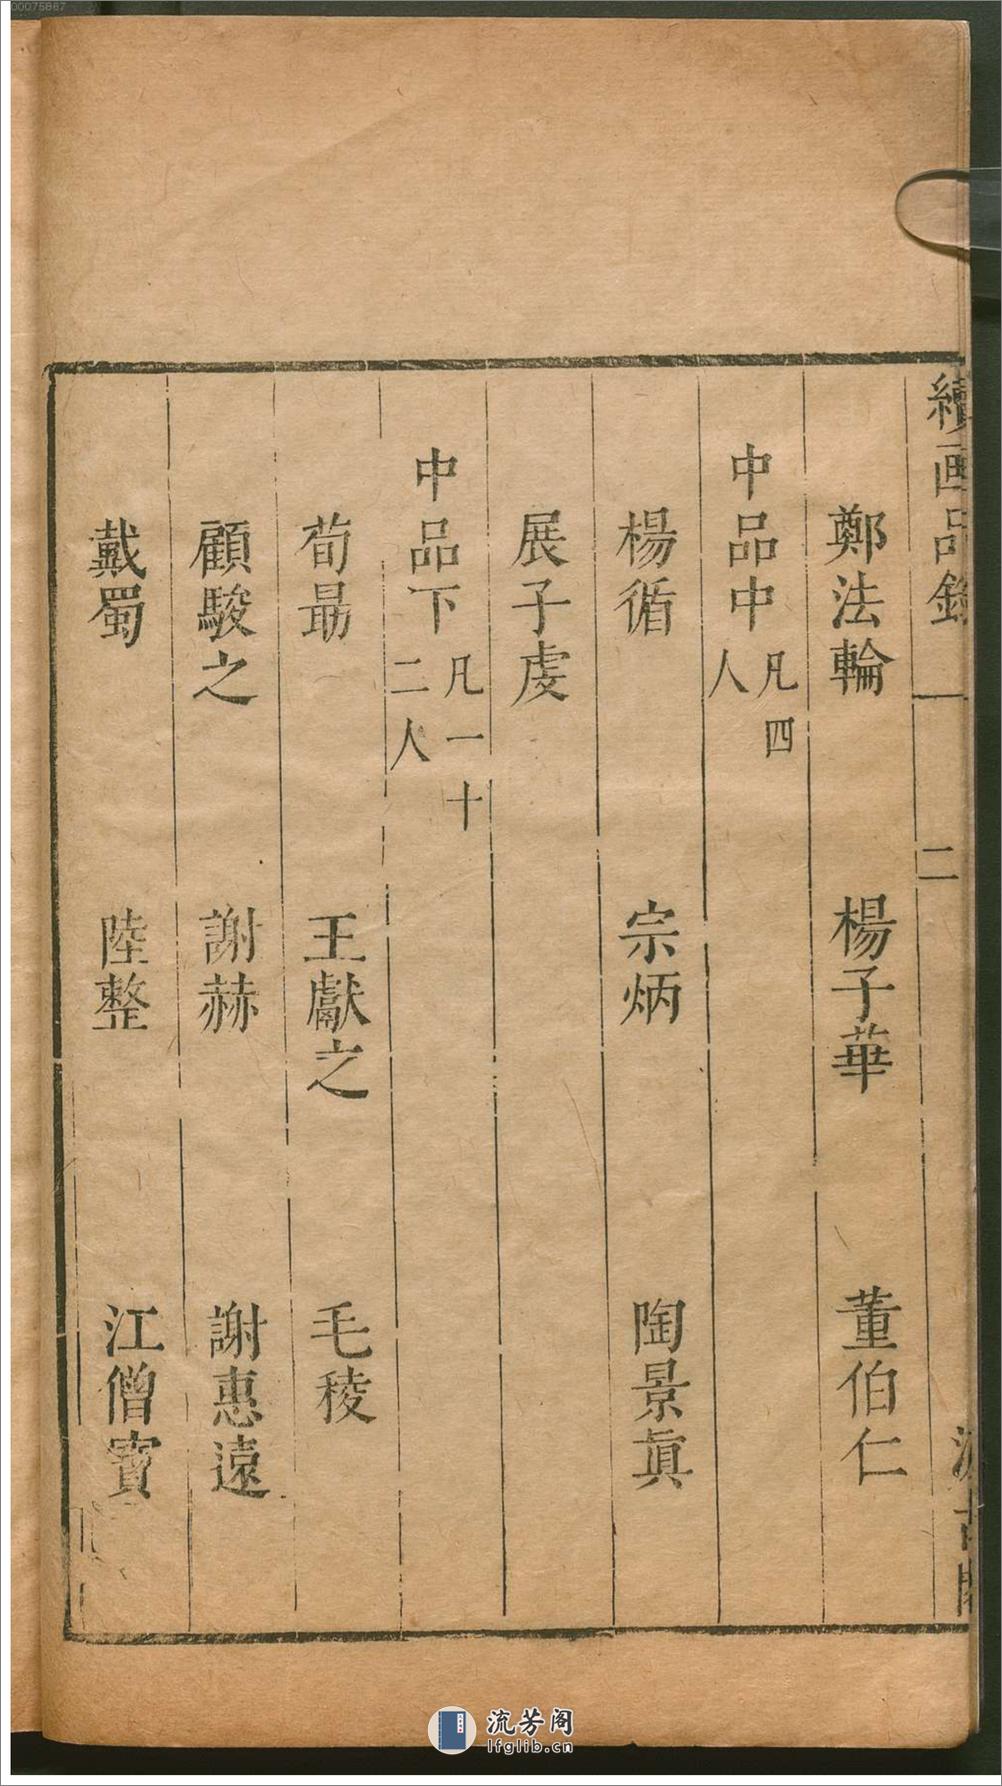 續画品錄
二
汲古閣
鄭法輪 楊子華 董伯仁
中品中 凡四人
楊循 宗炳 陶景眞
展子虔
中品下 凡一十二人
荀勗 王獻之 毛稜
顧駿之 謝赫 謝惠遠
戴蜀 陸整 江僧寳
00075867
流芳阁
lfglib.cn